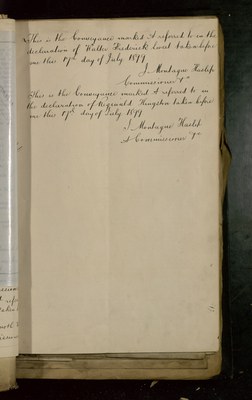 This is the Conveyance marked A referred to in the
declaration of Walter Frederick taken before
me this 17th day of July 1877
J. Montague Haslip
Commissioner &c
This is the Conveyance marked A referred to in
the declaration of Reginald Kingston taken before
me this 17th day of July 1877
J. Montague Haslip
A Commissioner &c